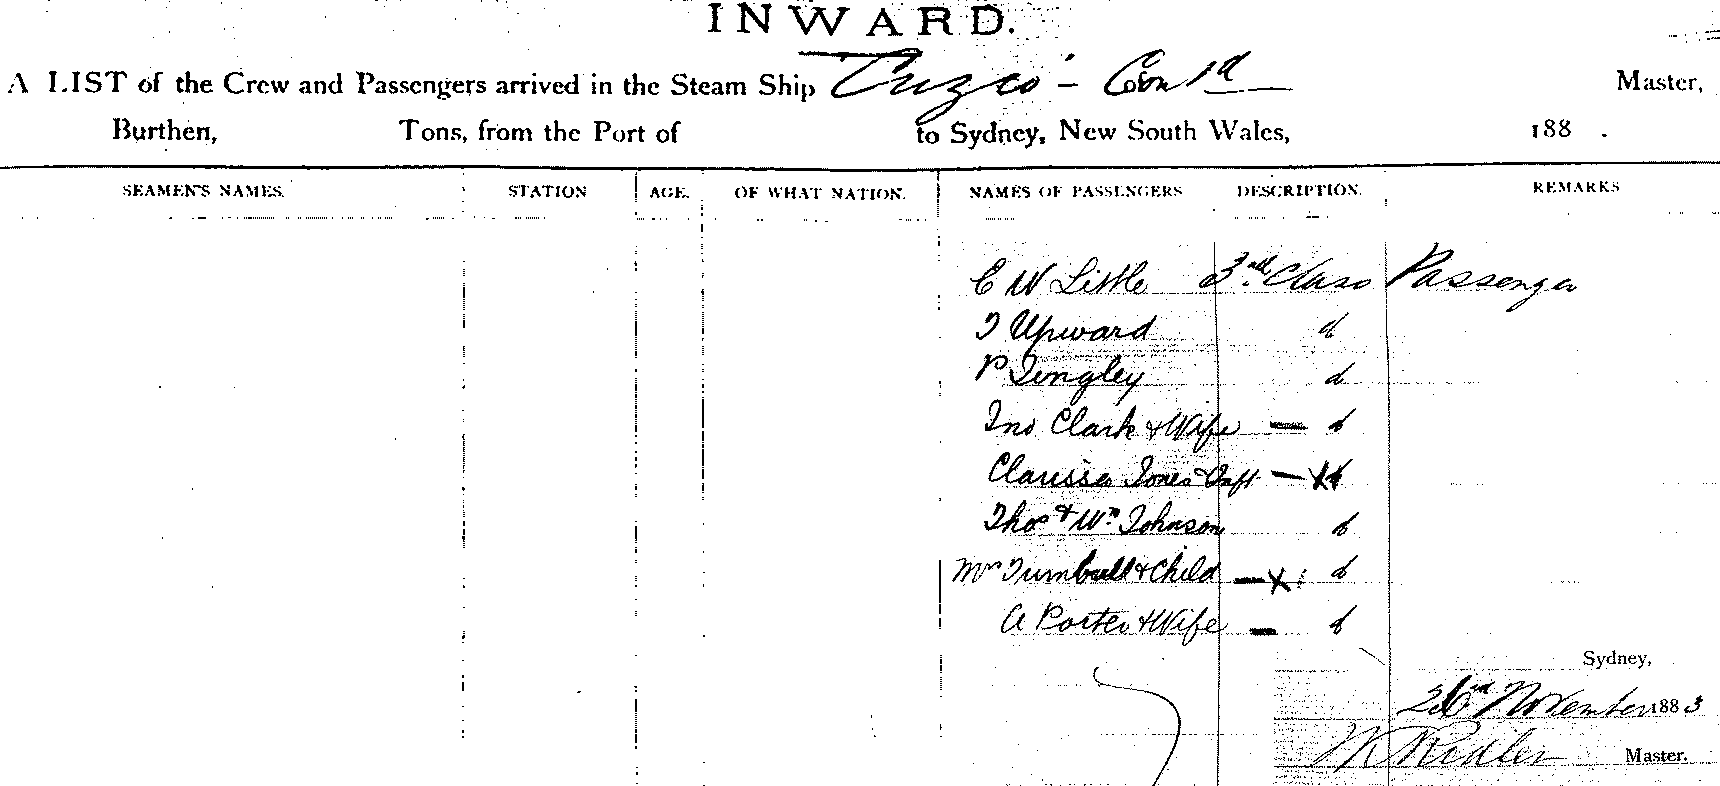 INWARD.
A LIST of the Crew and Passengers arrived in the Steam Ship Cuzco - Con'd Master,
Burthen, Tons, from the Port of to Sydney, New South Wales, 188 .
SEAMEN'S NAMES. STATION AGE. OF WHAT NATION. NAMES OF PASSENGERS DESCRIPTION. REMARKS
C W Little 3rd Class Passenger
T Upward d
P Tingley d
Jno Clark & Wife — d
Clarissa Jones & Inft — X d
Thos & Wm Johnson d
Mrs Turnbull & Child — X : d
A Porter & Wife — d
Sydney,
26th November 1883
Master.